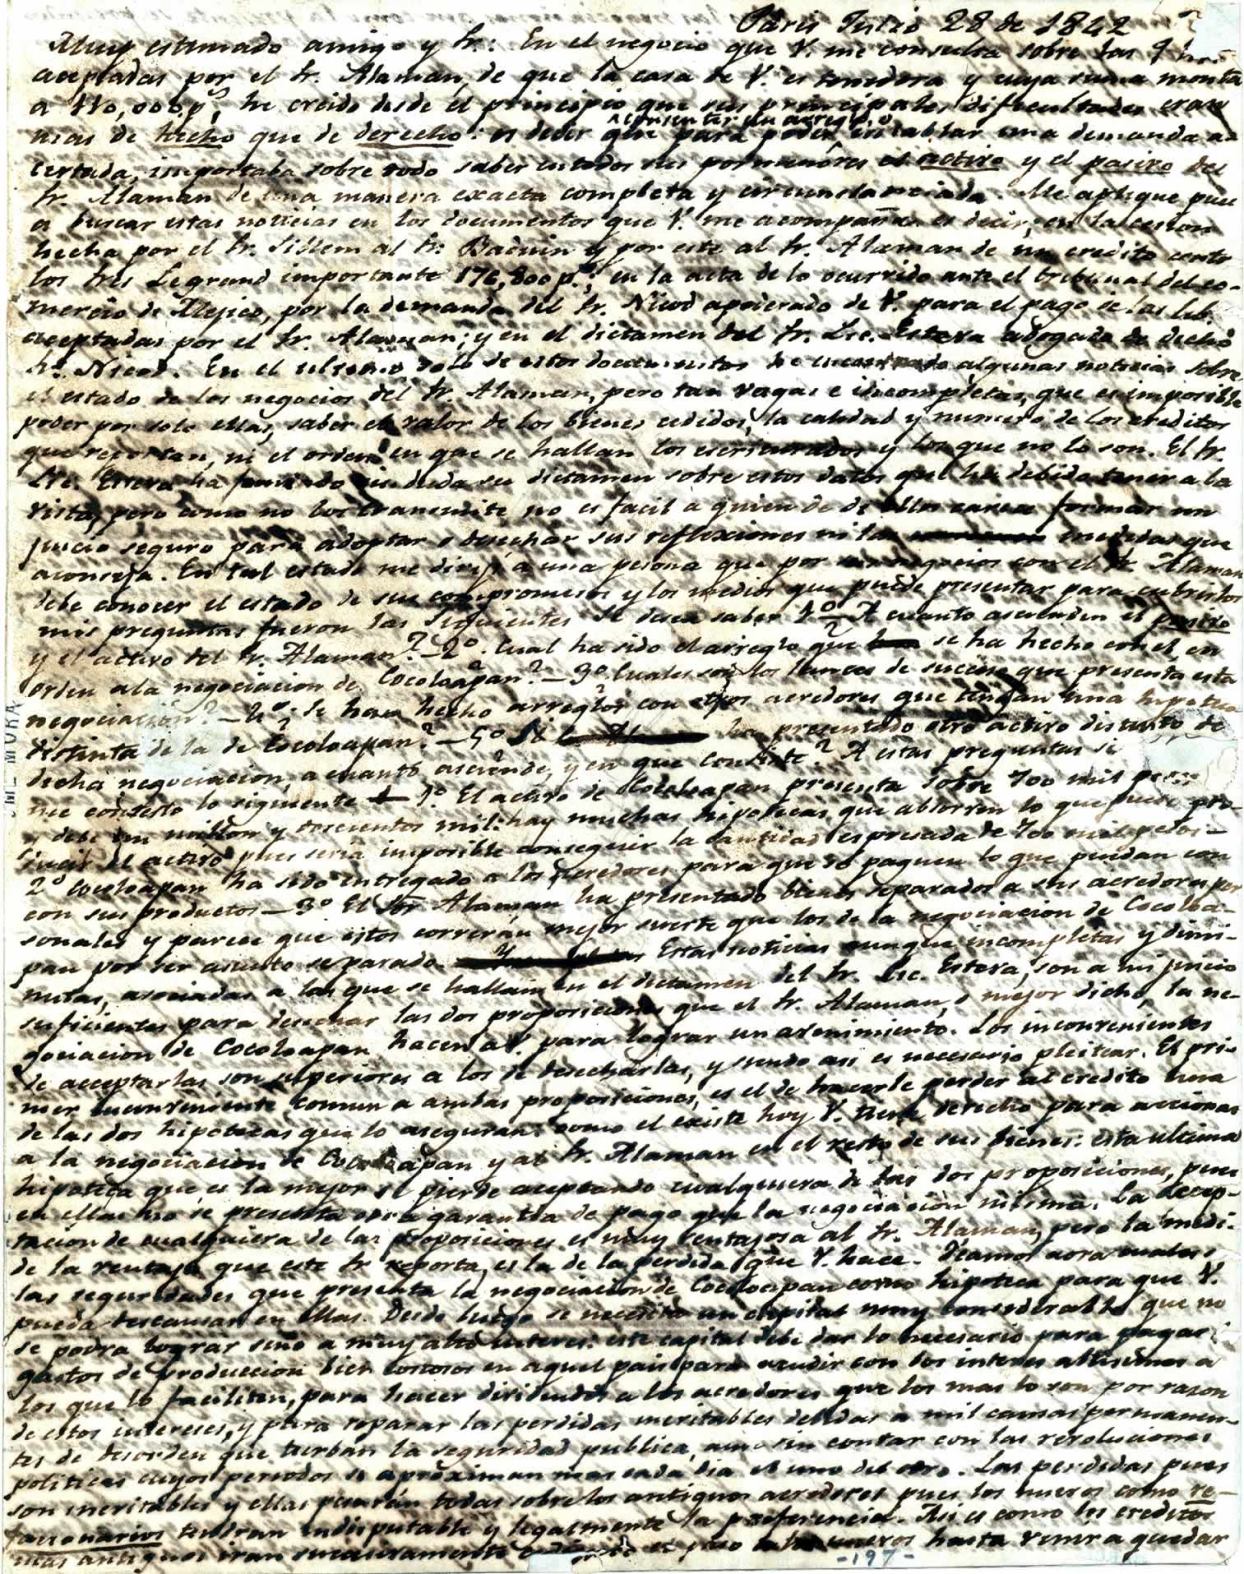 Paris Julio 28 de 1842
Muy estimado amigo y Sr: En el negocio que V. me consulta sobre las 9
aceptadas por el Sr. Alaman, de que la casa de V. es tenedora y cuya suma monta
a 110,000 ps, he creido desde el principio que sus principales dificultades eran
mas de hecho que de derecho: es decir que para poder entablar una demanda a-
consentir un arreglo, o
certada, importaba sobre todo saber en todos sus pormenores el activo y el pasivo del
Sr. Alaman de una manera exacta completa y circunstanciada. Me aplique pues
a buscar estas noticias en los documentos que V. me acompaña es decir, en la cesion
hecha por el Sr. Sillem al Sr. Baduin y por este al Sr. Alaman de un credito contra
los Sres Legrand importante 176,800 ps; en la acta de lo ocurrido ante el tribunal del co-
mercio de Mejico, por la demanda del Sr. Nicod apoderado de V. para el pago de las
aceptadas por el Sr. Alaman; y en el dictamen del Sr. Lic. Esteva abogado de dicho
Sr. Nicod. En el solo de estos documentos he encontrado algunas noticias sobre
el estado de los negocios del Sr. Alaman, pero tan vagas e incompletas, que es imposible
poder por solo ellas, saber el valor de los bienes cedidos, la calidad y numero de los creditos
que reportan, ni el orden en que se hallan los escriturados y los que no lo son. El Sr.
Lic. Esteva ha fundado sin duda su dictamen sobre estos datos que ha debido tener a la
vista, pero como no los transmite no es facil a quien de de ellos carece formar un
juicio seguro para adoptar o desechar sus reflexiones ni las medidas que
aconseja. En tal estado me dirijí a una persona que por sus negocios con el Sr. Alaman
debe conocer el estado de sus compromisos y los medios que puede presentar para cubrirlos
mis preguntas fueron las siguientes Se desea saber 1º A cuanto ascienden el pasivo
y el activo del Sr. Alaman? — 2º. Cual ha sido el arreglo que se ha hecho con el en
orden a la negociacion de Cocoloapan? — 3º Cuales son los lances de suceso que presenta esta
negociacion? — 4º Se han hecho arreglos con otros acredores que tengan una hipoteca
distinta de la de Cocoloapan? — 5º Si ha presentado otro activo distinto de
dicha negociacion, a cuanto asciende, y en que consiste? A estas preguntas se
me contestó lo siguiente 1º. El activo de Cocoloapan presenta sobre 700 mil pesos
y debe un millon y doscientos mil: hay muchas hipotecas que absorven lo que puede pro-
ducir el activo pues seria imposible conseguir la cantidad espresada de 700 mil pesos —
2º Cocoloapan ha sido entregado a los acredores para que se paguen lo que puedan con
con sus productos — 3º El Sor. Alaman ha presentado bienes separados a sus acredores per
sonales y parece que estos correrán mejor suerte que los de la negociacion de Cocoloa-
pan por ser asunto separado. Estas noticias aunque incompletas y dimi-
nutas, asociadas a las que se hallan en el dictamen del Sr. Lic. Esteva, son a mi juicio
suficientes para desechar las dos proposiciones que el Sr. Alaman, o mejor dicho, la ne-
gociacion de Cocoloapan hacen a V. para lograr un avenimiento. Los inconvenientes
de aceptarlas son superiores a los de desecharlas, y siendo asi es necesario pleitear. El pri-
mer inconveniente comun a ambas proposiciones, es el de hacerle perder al credito una
de las dos hipotecas que lo aseguran: como el existe hoy V. tiene derecho para accionar
a la negociacion de Cocoloapan y al Sr. Alaman en el resto de sus bienes: esta ultima
hipoteca que es la mejor se pierde aceptando cualquiera de las dos proposiciones, pues
en ellas no se presenta otra garantia de pago que la negociacion misma. La acep-
tacion de cualquiera de las proposiciones es muy ventajosa al Sr. Alaman, pero la medi-
da de la ventaja que este Sr reporta, es la de la perdida que V. hace. Veamos aora cuales
las seguridades que presenta la negociacion de Cocoloapan como hipoteca para que V.
pueda descansar en ellas. Desde luego se necesita un capital muy considerable que no
se podra lograr sino a muy alto interes: este capital debe dar lo necesario para pagar
gastos de produccion bien costosos en aquel pais para acudir con los interes altisimos a
los que lo faciliten, para hacer dividendos a los acredores que los mas lo son por razon
de estos intereses, y para reparar las perdidas inevitables debidas a mil causas permanen-
tes de desorden que turban la seguridad publica, aun sin contar con las revoluciones
politicas cuyos periodos se aproximan mas cada dia el uno del otro. Las perdidas pues
son inevitables y ellas pesarán todas sobre los antiguos acredores pues los nuevos como re-
faccionarios tendran indisputable y legalmente la preferencia. Asi es como los creditos
mas antiguos iran sucesivamente nuevos hasta venir a quedar
-197-